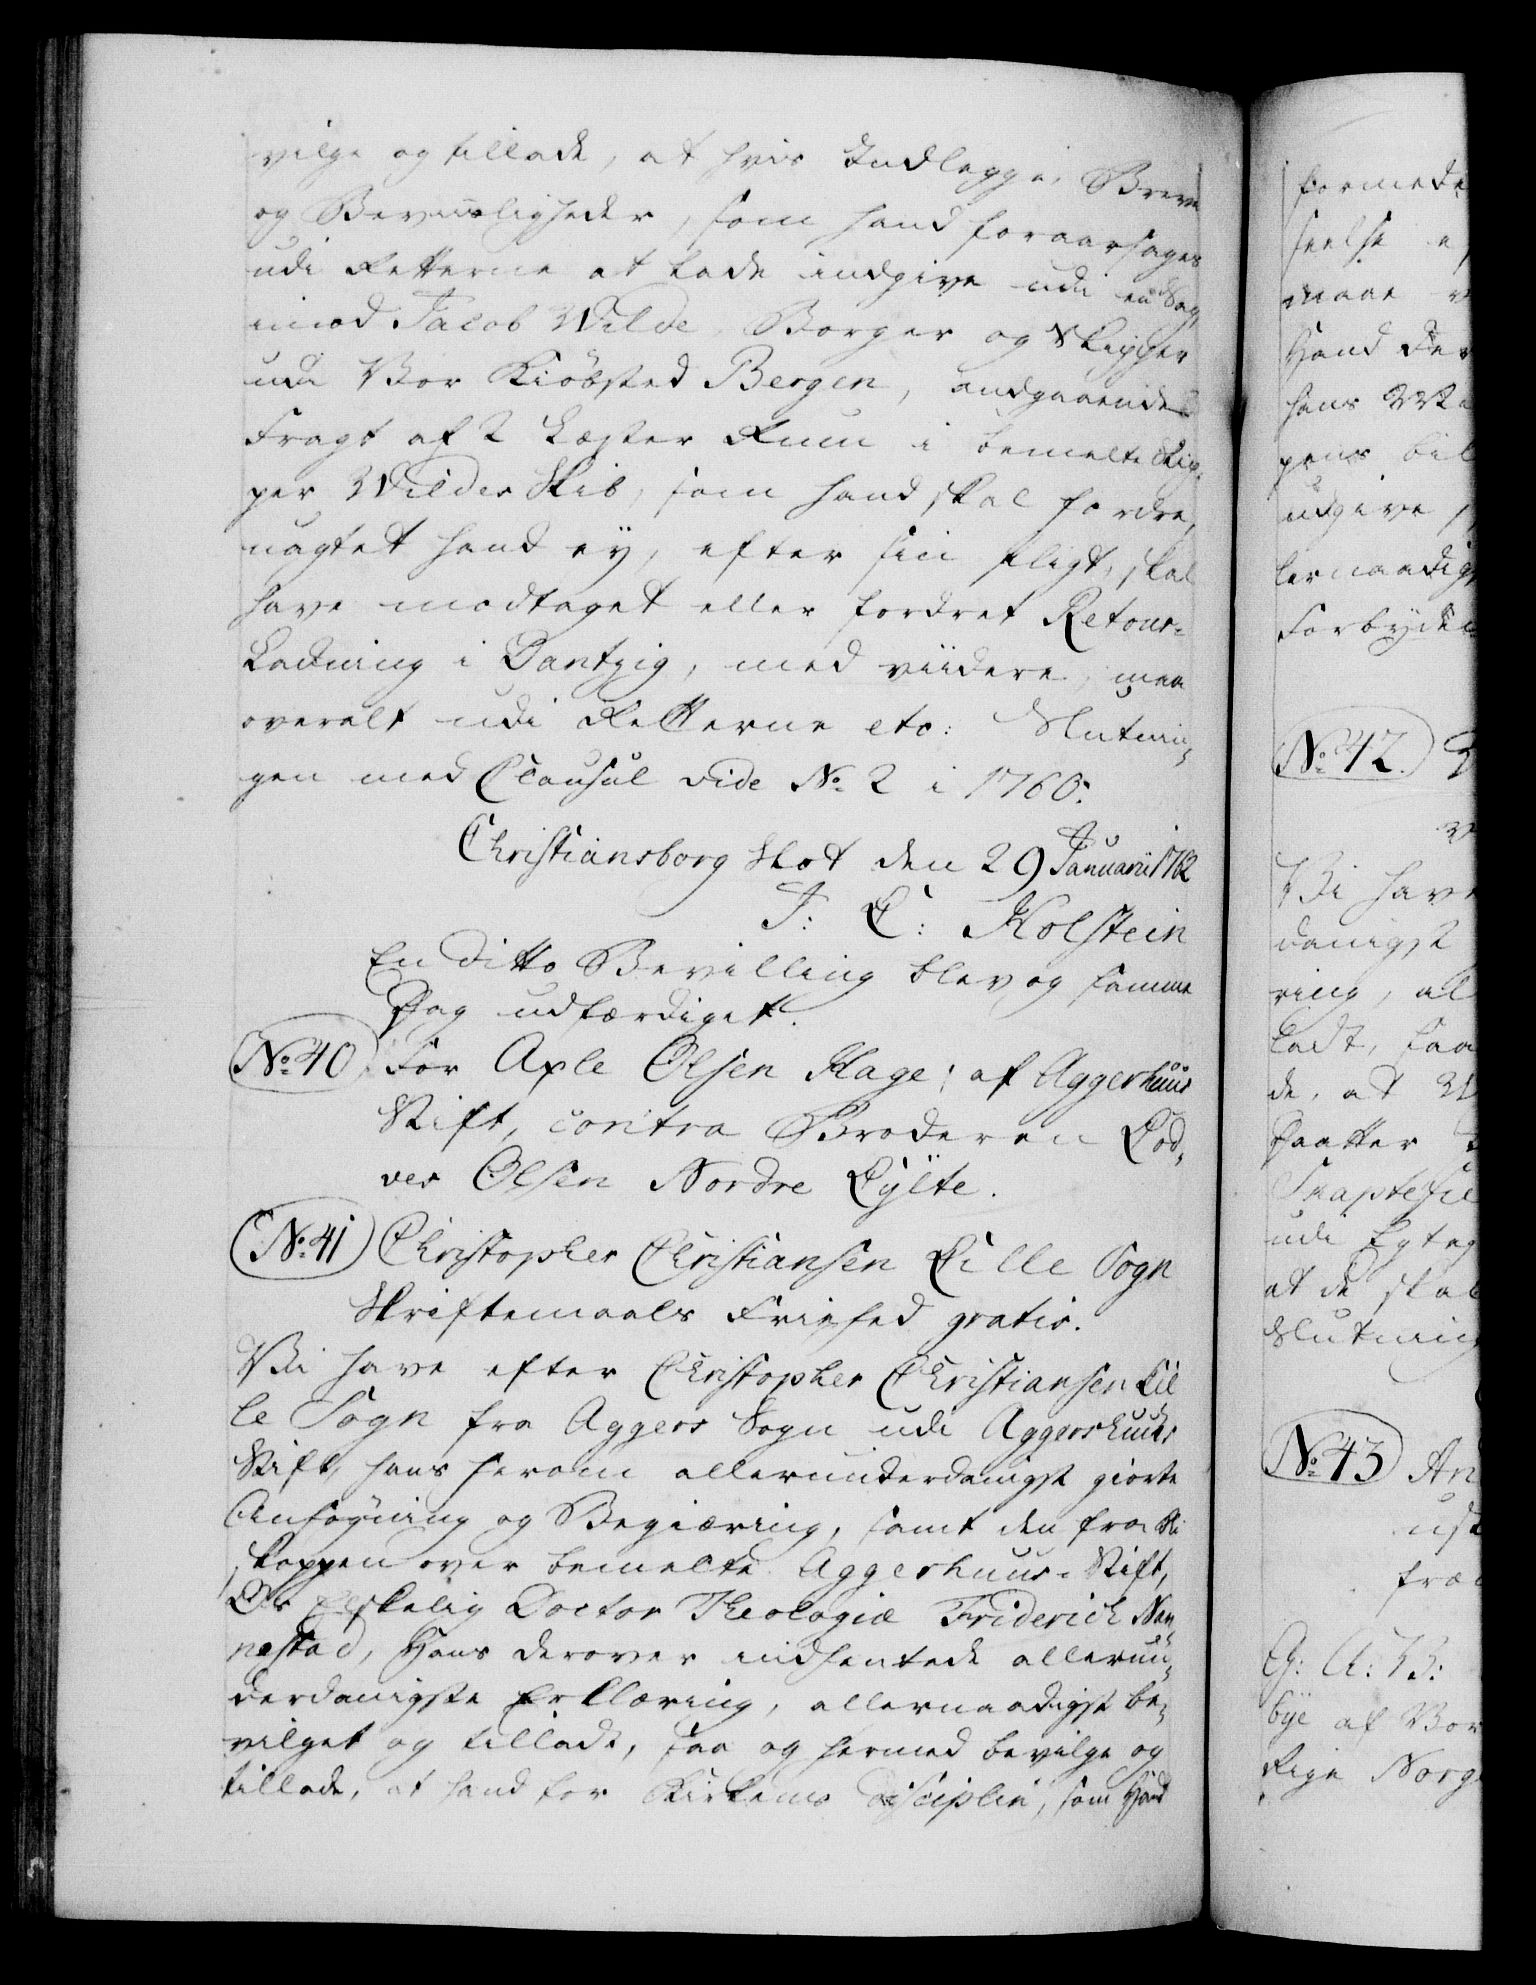 vilge og tillade, at hvis Indlegge, Breve
og Beviisligheder, som hand foraarsages
udi Retterne at lade indgive udi en Sag,
imod Jacob Wilde, Borger og Skipper
udi Vor Kiöbsted Bergen, andgaaende
Fragt af 2 Læster Rum i bemelte Skip-
per Wildes Skib, som hand skal fordre,
uagtet hand ey, efter sin Pligt, skal
have modtaget eller fordret Retour-
Ladning i Dantzig, med viidere, maa
overalt udi Retterne etc: Slutnin-
gen med Clausul vide No 2 i 1760.
Christiansborg Slot den 29 Januarii 1762
J: L: Holstein
En ditto Bevilling blev og samme
Dag udfærdiget.
No 40 For Axle Olsen Hage, af Aggerhuus
Stift, contra Broderen Lod-
ver Olsen Nordre Lÿlte.
No 41 Christopher Christiansen Lille Sogn
Skriftemaals Friehed gratis.
Vi have efter Christopher Christiansen Lil
le Sogn fra Aggers Sogn udi Aggershuus
Stift, hans herom allerunderdanigst giorte
Ansögning og Begiæring, samt den fra Bi
skoppen over bemelte Aggerhuus Stift,
Os Elskelig Doctor Theologiæ Friderich Nan-
nestad, Hans derover indhentede allerun-
derdanigste Erklæring, allernaadigst be-
vilget og tilladt, saa og hermed bevilge og
tillade, at hand for Kirkens Disciplin, som Hand
formede
seelse e
maae v
Hand der
hans
pens bil
udgive
lernaadigs
Forbydend
No 42.
Vi have
danigst
ring, al
ladt, saa
de, at
Daatter
Skaptefie
udi Egteg
at de skal
Slutning
No 43 An
ust
fræ
G: A: V:
bÿe af Vor
Rige Norg